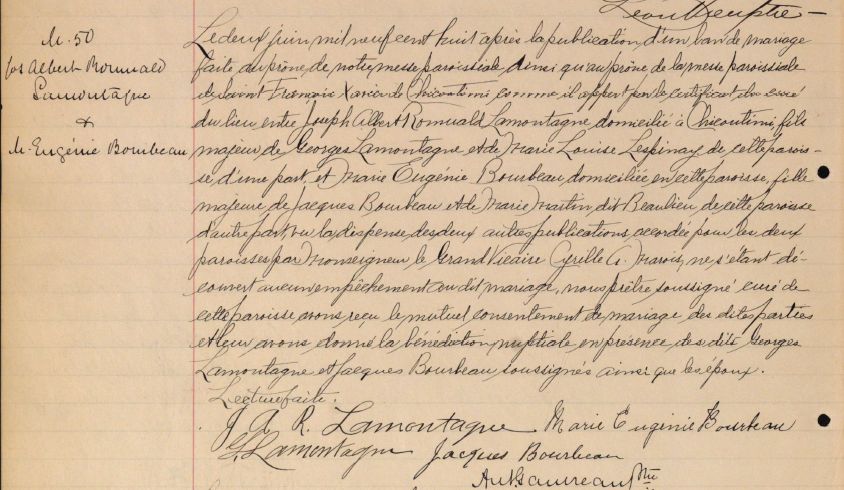 M. 50
Jos Albert Romuald
Lamontagne
&
M. Eugénie Bourbeau
Le deux juin mil neuf cent huit après la publication d'un ban de mariage
faite au prône de notre messe paroissiale ainsi qu'au prône de la messe paroissiale
de Saint François Xavier de Chicoutimi comme il appert par le certificat du curé
du lieu entre Joseph Albert Romuald Lamontagne domicilié à Chicoutimi, fils
majeur de Georges Lamontagne et de Marie Louise Lespinay de cette parois-
se d'une part, et Marie Eugénie Bourbeau, domiciliée en cette paroisse, fille
majeure de Jacques Bourbeau et de Marie Martin dit Beaulieu de cette paroisse
d'autre part, vu la dispense des deux autres publications accordée pour les deux
paroisses par Monseigneur le Grand Vicaire Cyrille A. Marois, ne s'étant dé-
couvert aucun empêchement au dit mariage, nous prêtre soussigné curé de
cette paroisse avons reçu le mutuel consentement de mariage des dites parties
et leur avons donné la bénédiction nuptiale en présence des dits Georges
Lamontagne et Jacques Bourbeau soussignés ainsi que les époux.
Lecture faite.
J. A. R. Lamontagne Marie Eugénie Bourbeau
G. Lamontagne Jacques Bourbeau
Ant. Gauvreau Ptre